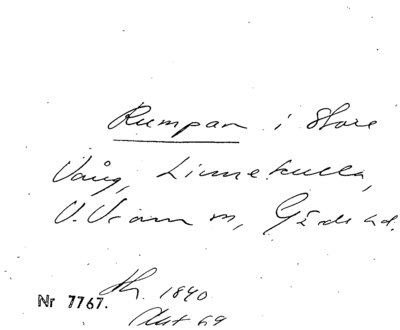 Rumpan i Stora
Vång, Linnekulla,
V. Vram sn, Gärds hd.
Nr 7767.
1840
Akt 69